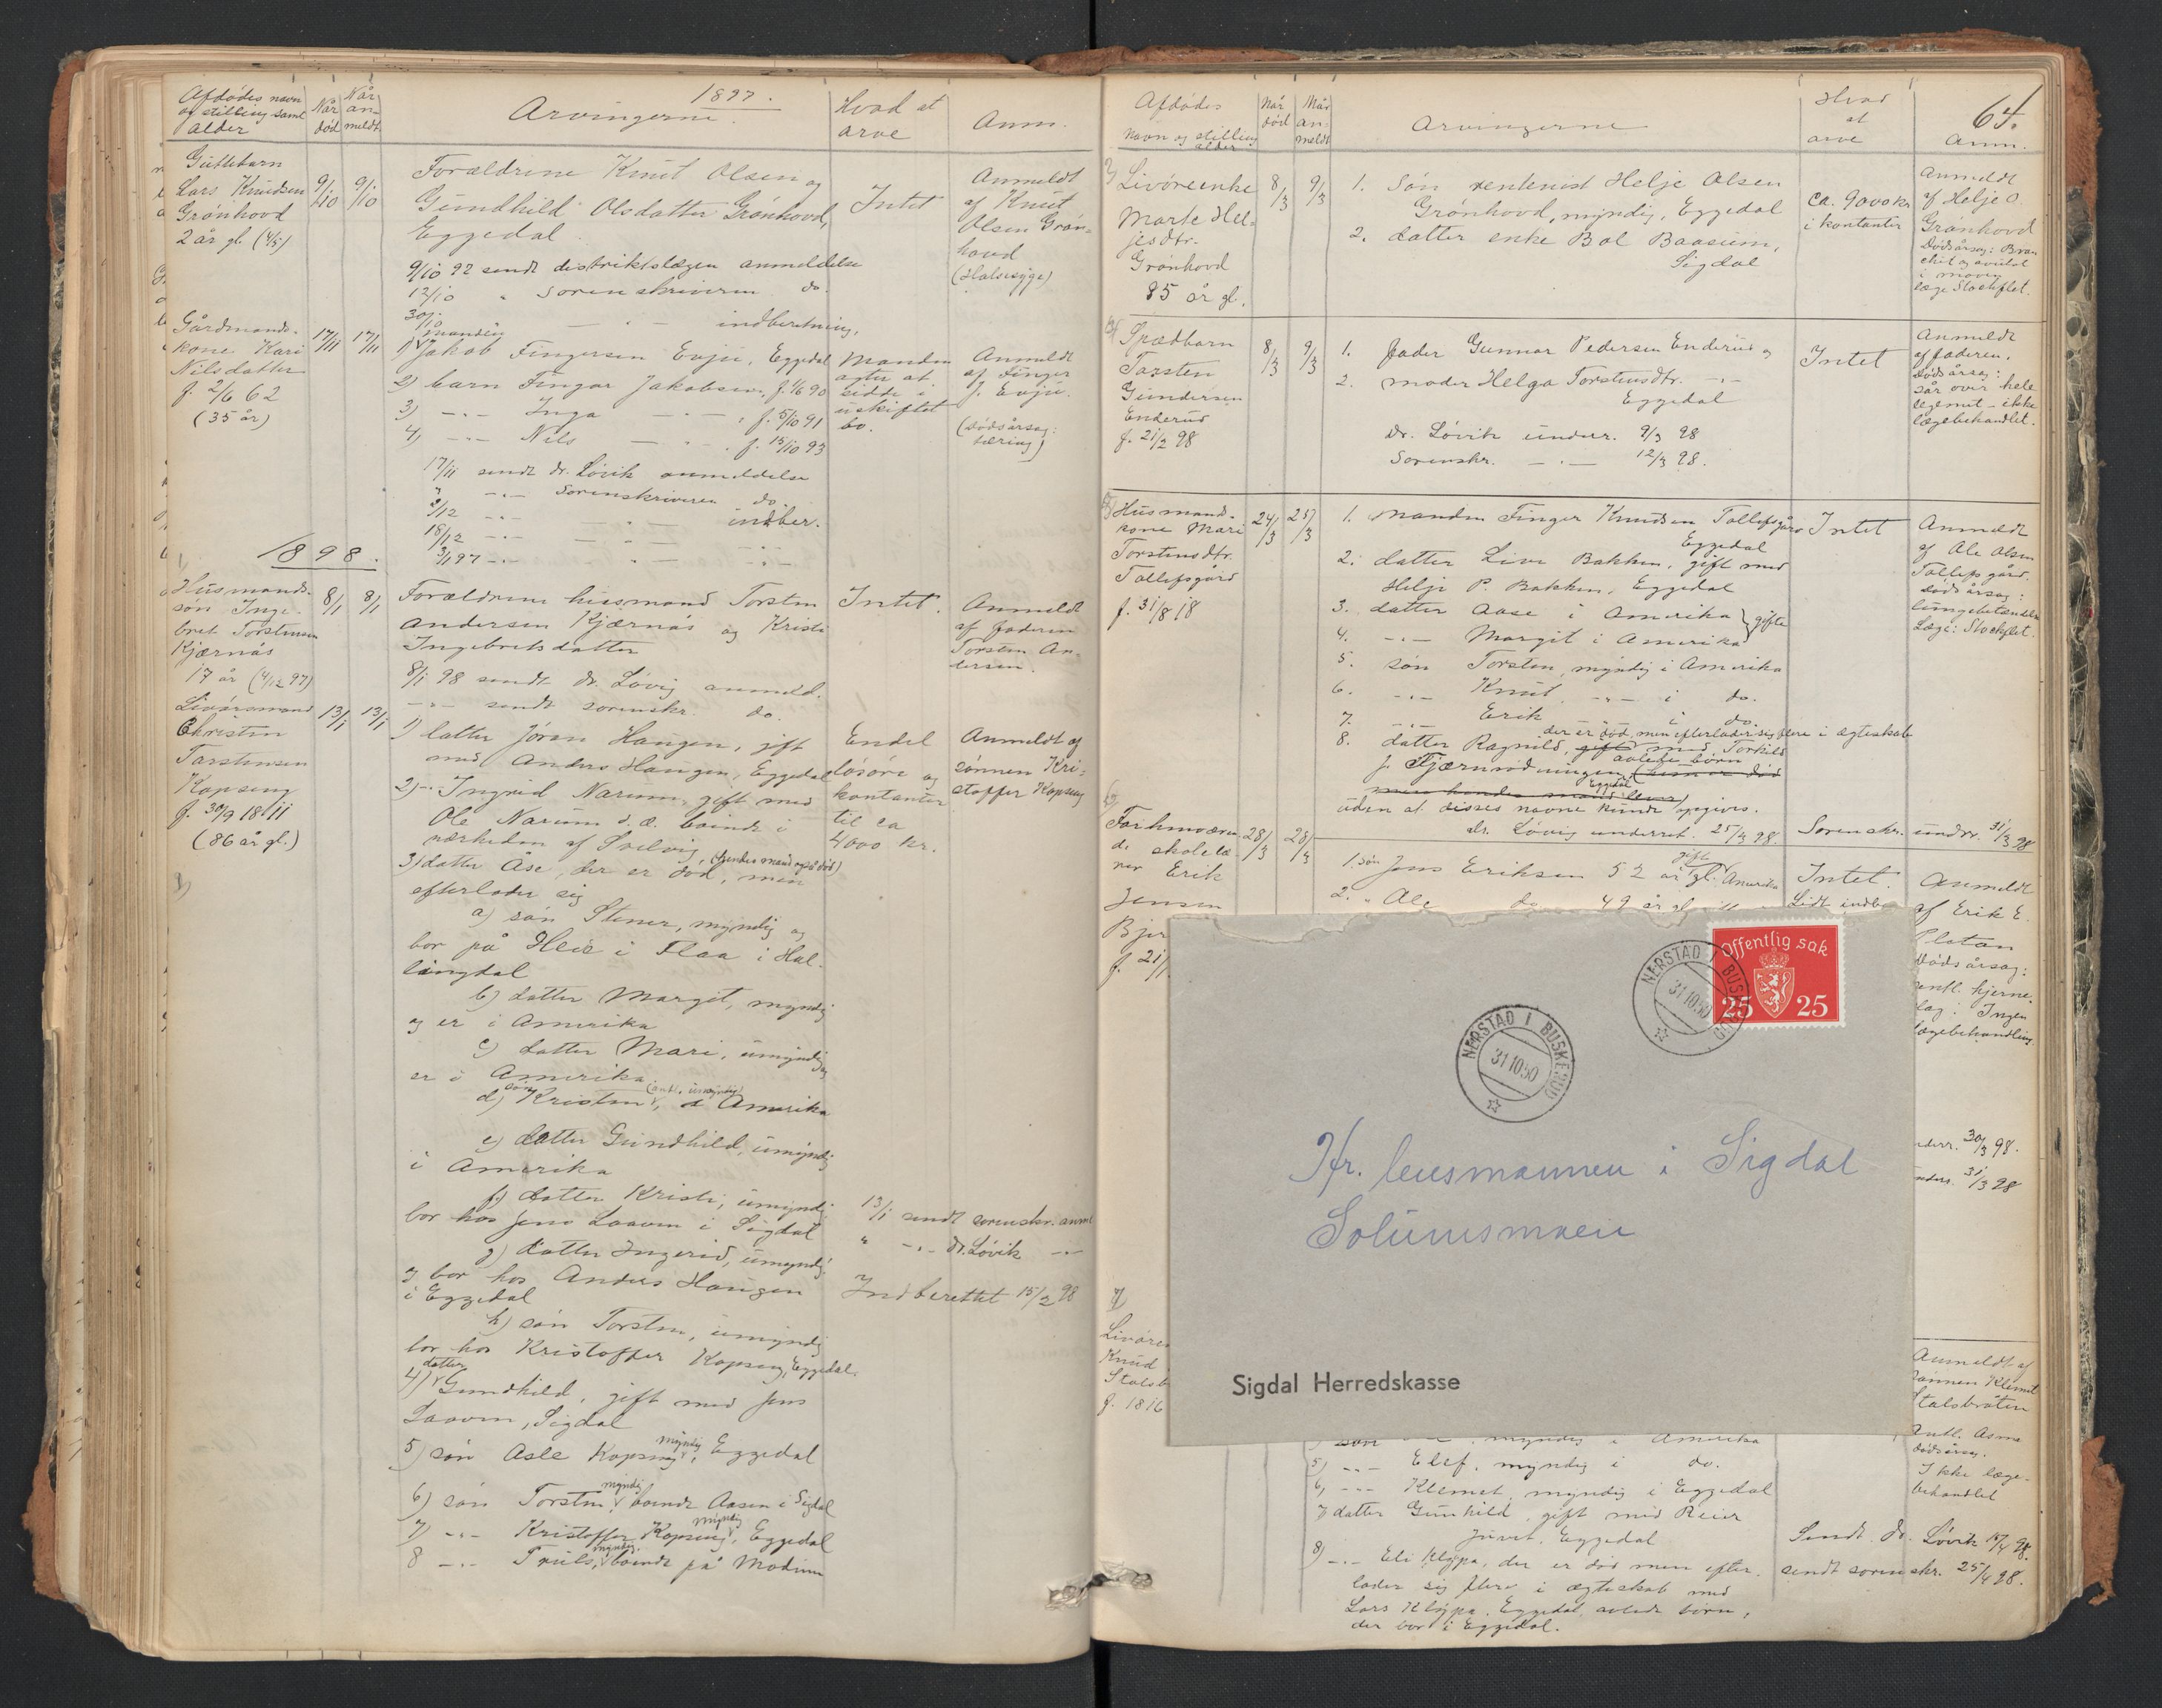 Afdødes navn
og stilling samt
alder
Når
død
Når
an-
meldt
1897.
Arvingerne.
Hvad at
arve
Anm.
Guttebarn
Lars Knudsen
Grønhovd
2 år gl. (4/5)
9/10
9/10
Forældrene Knut Olsen og
Gundhild Olsdatter Grønhovd,
Eggedal.
9/10 92 sendt distriktslægen anmeldelse
12/10 " sorenskriveren do.
30/10 — " — indberetning.
Intet
Anmeldt
af Knut
Olsen Grøn-
hovd
(Halssyge)
Gårdmands-
kone Kari
Nilsdatter
f. 2/6 62
(35 år)
17/11
17/11
1) manden Jakob Fingersen Evju, Eggedal
2) barn Fingar Jakobsen, f. 1/6 90
3) -"- Inga — " — f. 5/10 91
4) -"- Nils — " — f. 15/10 93
17/11 sendt dr. Løvik anmeldelse
" -"- Sorenskriveren do.
2/12 -"- " — indber.
18/12 -"- — " — -"-
3/1 97 -"- — " — -"-
Manden
agter at
sidde i
uskiftet
bo.
Anmeldt
af Finger
J. Evju.
(dødsårsag:
tæring)
1898.
Husmands-
søn Inge-
bret Torstensen
Kjærnås
17 år (4/12 97)
8/1
8/1
Forældrene husmand Torsten
Andersen Kjærnås og Kristi
Ingebretsdatter
8/1 98 sendt dr. Løvig anmeld.
-"- sendt sorenskr. do.
Intet.
Anmeldt
af faderen
Torsten An-
dersen.
Livøresmand
Christen
Torstensen
Kopseng
f. 30/9 1811
(86 år gl.)
13/1
13/1
1) datter Jøran Haugen, gift
med Anders Haugen, Eggedal
2) -"- Ingrid Narum, gift med
Ole Narum s.æ. boende i
nærheden af Svelvig,
3) datter Åse, der er død, (hendes mand også død) men
efterlader sig
a) søn Stener, myndig og
bor på Heie i Flaa i Hal-
lingdal
b) datter Margit, myndig
og er i Amerika
c) datter Mari, umyndig og
er i Amerika
d) søn Kristen, (antl. umyndig) i Amerika
e) datter Gundhild, umyndig
i Amerika
f) datter Kristi, umyndig
bor hos Jens Laaven i Sigdal
g) datter Ingerid, umyndig
og bor hos Anders Haugen
i Eggedal
h) søn Torsten, umyndig
bor hos Kristoffer Kopseng, Eggedal.
4) datter Gundhild, gift med Jens
Laaven, Sigdal
5) søn Asle Kopseng, myndig Eggedal
6) søn Torsten, myndig boende Aasen i Sigdal
7) -"- Kristoffer Kopseng, myndig Eggedal
8 -"- Truls, myndig. boende på Modum
Endel
løsøre og
kontanter
til ca
4000 kr.
Anmeldt af
sønnen Kri-
stoffer Kopseng
13/1 sendt sorenskr. anm.
" -"- dr. Løvik -"-
Indberettet 15/2 98
64.
Afdødes
navn og stilling
alder
Når
død
Når
an-
meldt
Arvingerne
Hvad
at
arve
Anm.
3) Livøreenke
Marte Hel-
jesdtr.
Grønhovd
85 år gl.
8/3
9/3
1. Søn rentenist Helje Olsen
Grønhovd, myndig, Eggedal
2. datter enke Bol Baasum,
Sigdal
ca. 9000 kr
i kontanter
Anmeldt
af Helje O
Grønhovd
Dødsårsag: Bron
chit og svulst
i maven
læge Stockflet.
4) Spædbarn
Torsten
Gundersen
Enderud
f. 21/2 98
8/3
9/3
1. fader Gunnar Pedersen Enderud og
2. moder Helga Torstensdtr. -"-
Eggedal
Dr. Løvik underr. 9/3 98
Sorenskr. — " — 12/3 98.
Intet
Anmeldt
af faderen.
Dødsårsag:
sår over hele
legemet - ikke
lægebehandlet.
5) Husmands-
kone Mari
Torstensdtr.
Tollefsgård
f. 31/8 18
24/3
25/3
1. manden Finger Knudsen Tollefsgård
Eggedal
2. datter Live Bakken, gift med
Helje P. Bakken, Eggedal
3. datter Aase i Amerika } gifte
4. -"- Margit i Amerika
5. søn Torsten, myndig i Amerika
6. -"- Knut, -"- i do.
7. -"- Erik i do
8. datter Ragnild, der er død, men efterlader sig flere i ægteskab
gift med Torkild
J. Fjærnrodningen, avlede børn
Eggedal
uden at disses navne kunde opgives.
dr. Løvig underret. 25/3 98.
Sorenskr. underr. 31/3 98
Intet
Anmeldt
af Ole Olsen
Tollefsgård.
Dødsårsag:
lungebetændelse
Læge: Stockflet.
6)
Forhenværen
de skolelæ-
rer Erik
Jensen
28/3
28/3
1. søn Jens Eriksen 52 år gl. gift Amerika
2. " Ole do. 49 år gl.
Intet.
Anmeldt
af Erik E.
Pletan
Dødsårsag:
antl. hjerne-
slag. Ingen
lægebehandling.
30/3 98.
31/3 98
Offentlig sak
25 25
NERSTAD I BUSKERUD
31.10.50
NERSTAD I BUSKERUD
31.10.50
Hr. lensmannen i Sigdal
Solumsmoen
Sigdal Herredskasse
7)
Knud
f. 1816
søn myndig i Amerika
5) -"- Elef, myndig i do.
6, -"- Klemet, myndig i Eggedal
7) datter Gunhild, gift med Reier
Juvet, Eggedal
8) -"- Eli Kløpa, der er død men efter-
lader sig flere i ægteskab med
Lars Kløpa, Eggedal, avlede børn,
der bor i Eggedal.
Anmeldt af
sønnen Klemet
Stalsbråten
Antl. Asma
dødsårsag.
Ikke læge-
behandlet
Sendt dr. Løvik 15/4 98.
sendt sorenskr. 25/4 98.